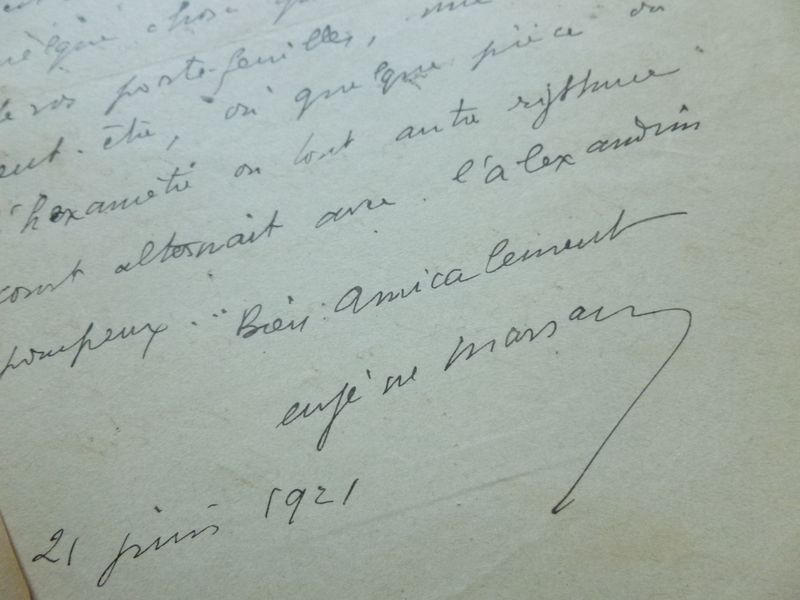 quelque chose
de vos porte-feuilles, une
peut-être, où quelque pièce où
l'hexamètre ou tout autre rythme
court alternait avec l'alexandrin
pompeux... Bien amicalement
eugène marsan
21 juin 1921